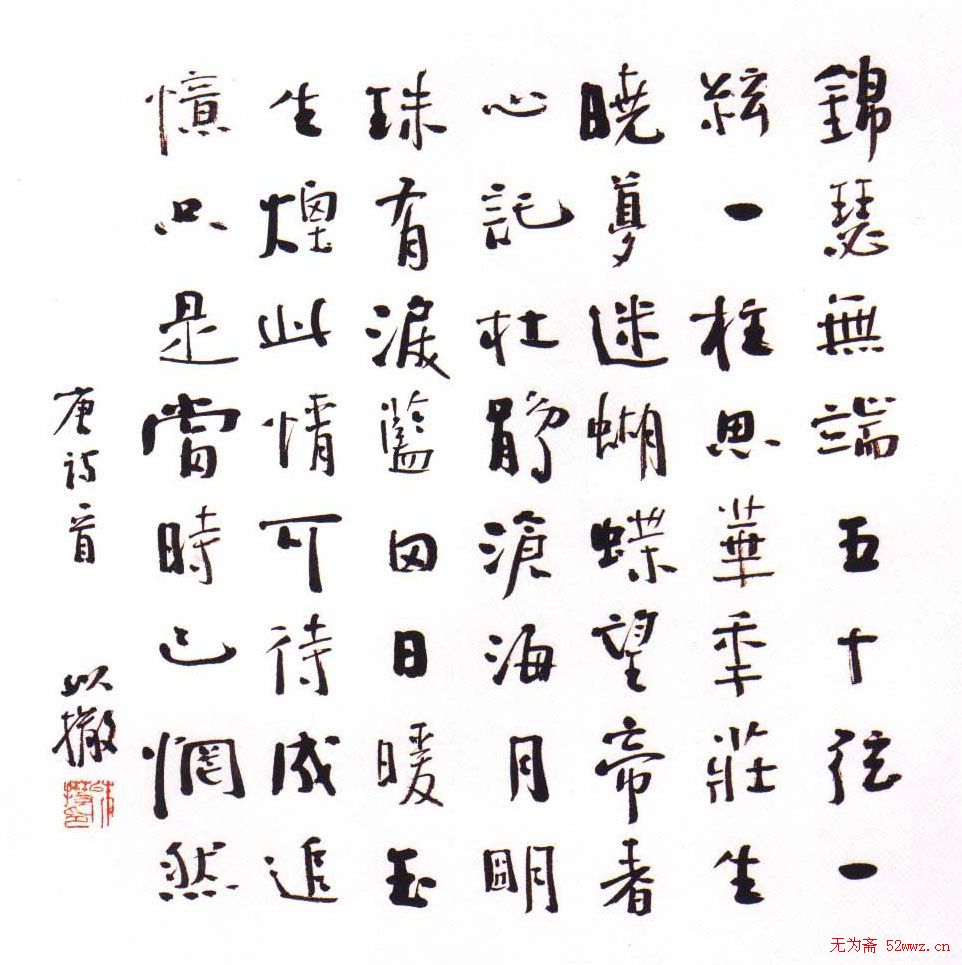 錦瑟無端五十弦一
絃一柱思華年莊生
曉夢迷蝴蝶望帝春
心託杜鵑滄海月明
珠有淚藍田日暖玉
生煙此情可待成追
憶只是當時已惘然
唐詩一首 以撒
无为斋 52wwz.cn